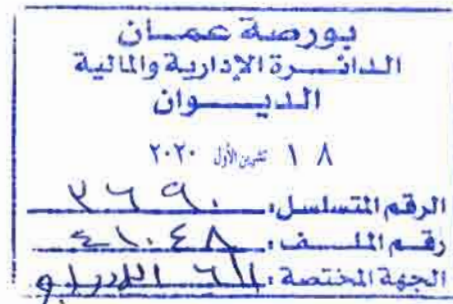 بورصة عمان
الدائرة الإدارية والمالية
الديوان
١٨ تشرين الأول ٢٠٢٠
الرقم المتسلسل: ٣٦٩٠
رقم الملف: ٤١٠٤٨
الجهة المختصة: